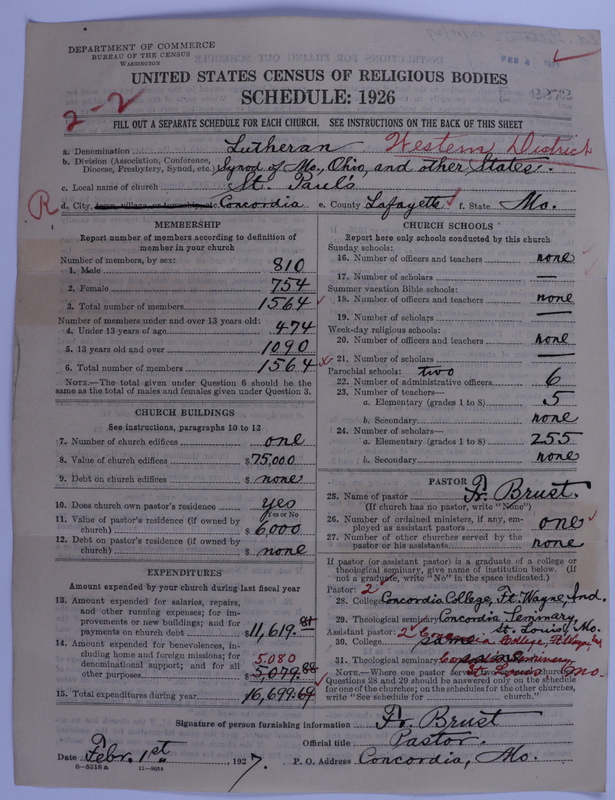 DEPARTMENT OF COMMERCE
BUREAU OF THE CENSUS
WASHINGTON
FEB 4
2872
UNITED STATES CENSUS OF RELIGIOUS BODIES
SCHEDULE: 1926
2-2
FILL OUT A SEPARATE SCHEDULE FOR EACH CHURCH. SEE INSTRUCTIONS ON THE BACK OF THIS SHEET
a. Denomination Lutheran Western District
b. Division (Association, Conference, Diocese, Presbytery, Synod, etc.) Synod of Mo., Ohio, and other States.
c. Local name of church St. Pauls
R d. City, town, village, or township, etc. Concordia e. County Lafayette f. State Mo.
MEMBERSHIP
Report number of members according to definition of
member in your church
Number of members, by sex:
1. Male 810
2. Female 754
3. Total number of members 1564
Number of members under and over 13 years old:
4. Under 13 years of age 474
5. 13 years old and over 1090
6. Total number of members 1564
NOTE.—The total given under Question 6 should be the
same as the total of males and females given under Question 3.
CHURCH BUILDINGS
See instructions, paragraphs 10 to 12
7. Number of church edifices one
8. Value of church edifices $75,000
9. Debt on church edifices $ none
10. Does church own pastor's residence yes
Yes or No
11. Value of pastor's residence (if owned by
church) $ 6,000
12. Debt on pastor's residence (if owned by
church) $ none
EXPENDITURES
Amount expended by your church during last fiscal year
13. Amount expended for salaries, repairs,
and other running expenses; for im-
provements or new buildings; and for
payments on church debt $11,619.81
14. Amount expended for benevolences, in-
cluding home and foreign missions; for
denominational support; and for all
other purposes 5,080 $5,079.88
15. Total expenditures during year $16,699.69
CHURCH SCHOOLS
Report here only schools conducted by this church
Sunday schools:
16. Number of officers and teachers none
17. Number of scholars —
Summer vacation Bible schools:
18. Number of officers and teachers none
19. Number of scholars —
Week-day religious schools:
20. Number of officers and teachers none
21. Number of scholars —
Parochial schools: two
22. Number of administrative officers 6
23. Number of teachers—
a. Elementary (grades 1 to 8) 5
b. Secondary none
24. Number of scholars—
a. Elementary (grades 1 to 8) 255
b. Secondary none
PASTOR
25. Name of pastor Fr. Brust.
(If church has no pastor, write "None")
26. Number of ordained ministers, if any, em-
ployed as assistant pastors one
27. Number of other churches served by the
pastor or his assistants none
If pastor (or assistant pastor) is a graduate of a college or
theological seminary, give name of institution below. (If
not a graduate, write "No" in the space indicated.)
Pastor: 2
28. College Concordia College, Ft. Wayne, Ind.
29. Theological seminary Concordia Seminary
St. Louis, Mo.
Assistant pastor: 2
30. College same Concordia College, Ft. Wayne Ind
31. Theological seminary same Concordia Seminary
St. Louis Mo.
NOTE.—Where one pastor serves two or more churches,
Questions 28 and 29 should be answered only on the schedule
for one of the churches; on the schedules for the other churches,
write "See schedule for church."
Signature of person furnishing information Fr. Brust
Official title Pastor.
Date Febr. 1st, 1927. P. O. Address Concordia, Mo.
8—5518 a 11—9064